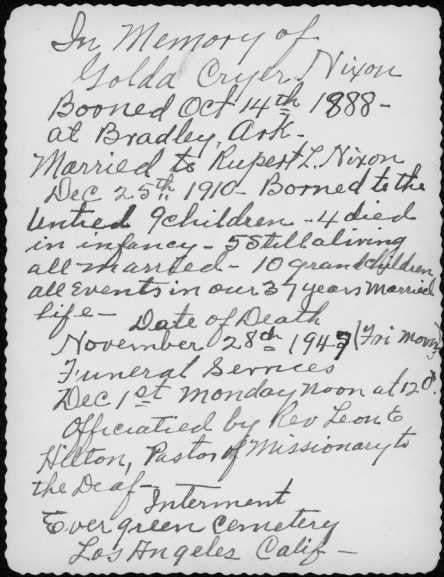 In Memory of
Golda Cryer Nixon
Booned Oct 14th 1888-
at Bradley, Ark-
Married to Rupert L. Nixon
Dec 25th 1910- Borned to the
Untied 9 children - 4 died
in infancy - 5 Still a living
all married - 10 grandchildren
all Events in our 37 years Married
life -
Date of Death
November 28th 1947 (Fri Morn
Funeral Services
Dec 1st Monday Noon at 12 o.
Officiatied by Rev Leon E
Hilton, Pastor of Missionary to
the Deaf -
Interment
Evergreen Cemetery
Los Angeles Calif -